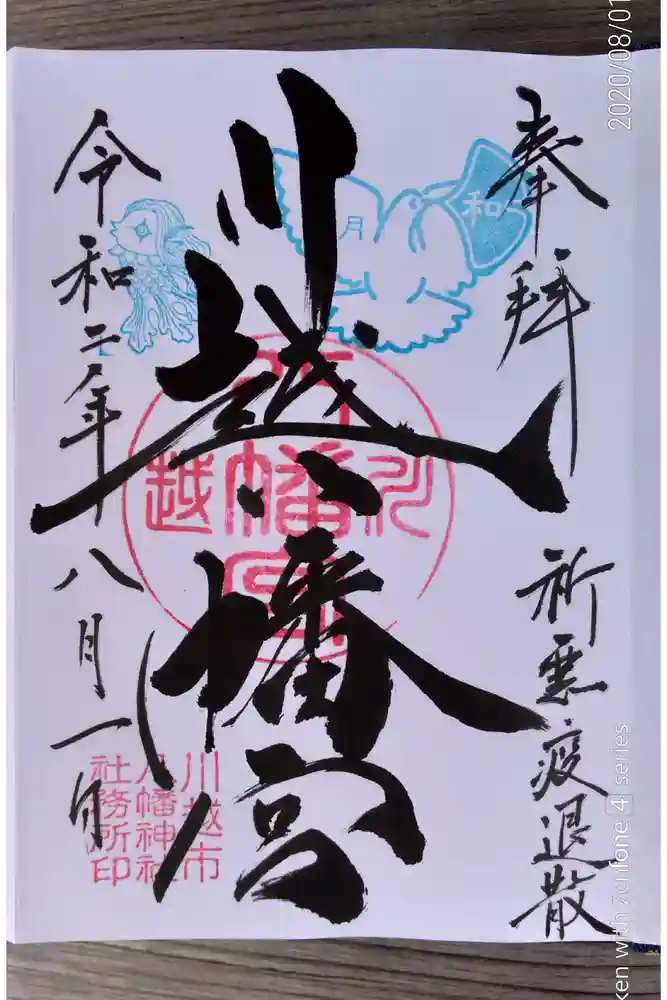 奉拝
祈悪疫退散
川越八幡宮
令和二年八月一日
和
月
川越
八幡宮
川越市
八幡神社
社務所印
2020/08/01
ken with Zenfone 4 series